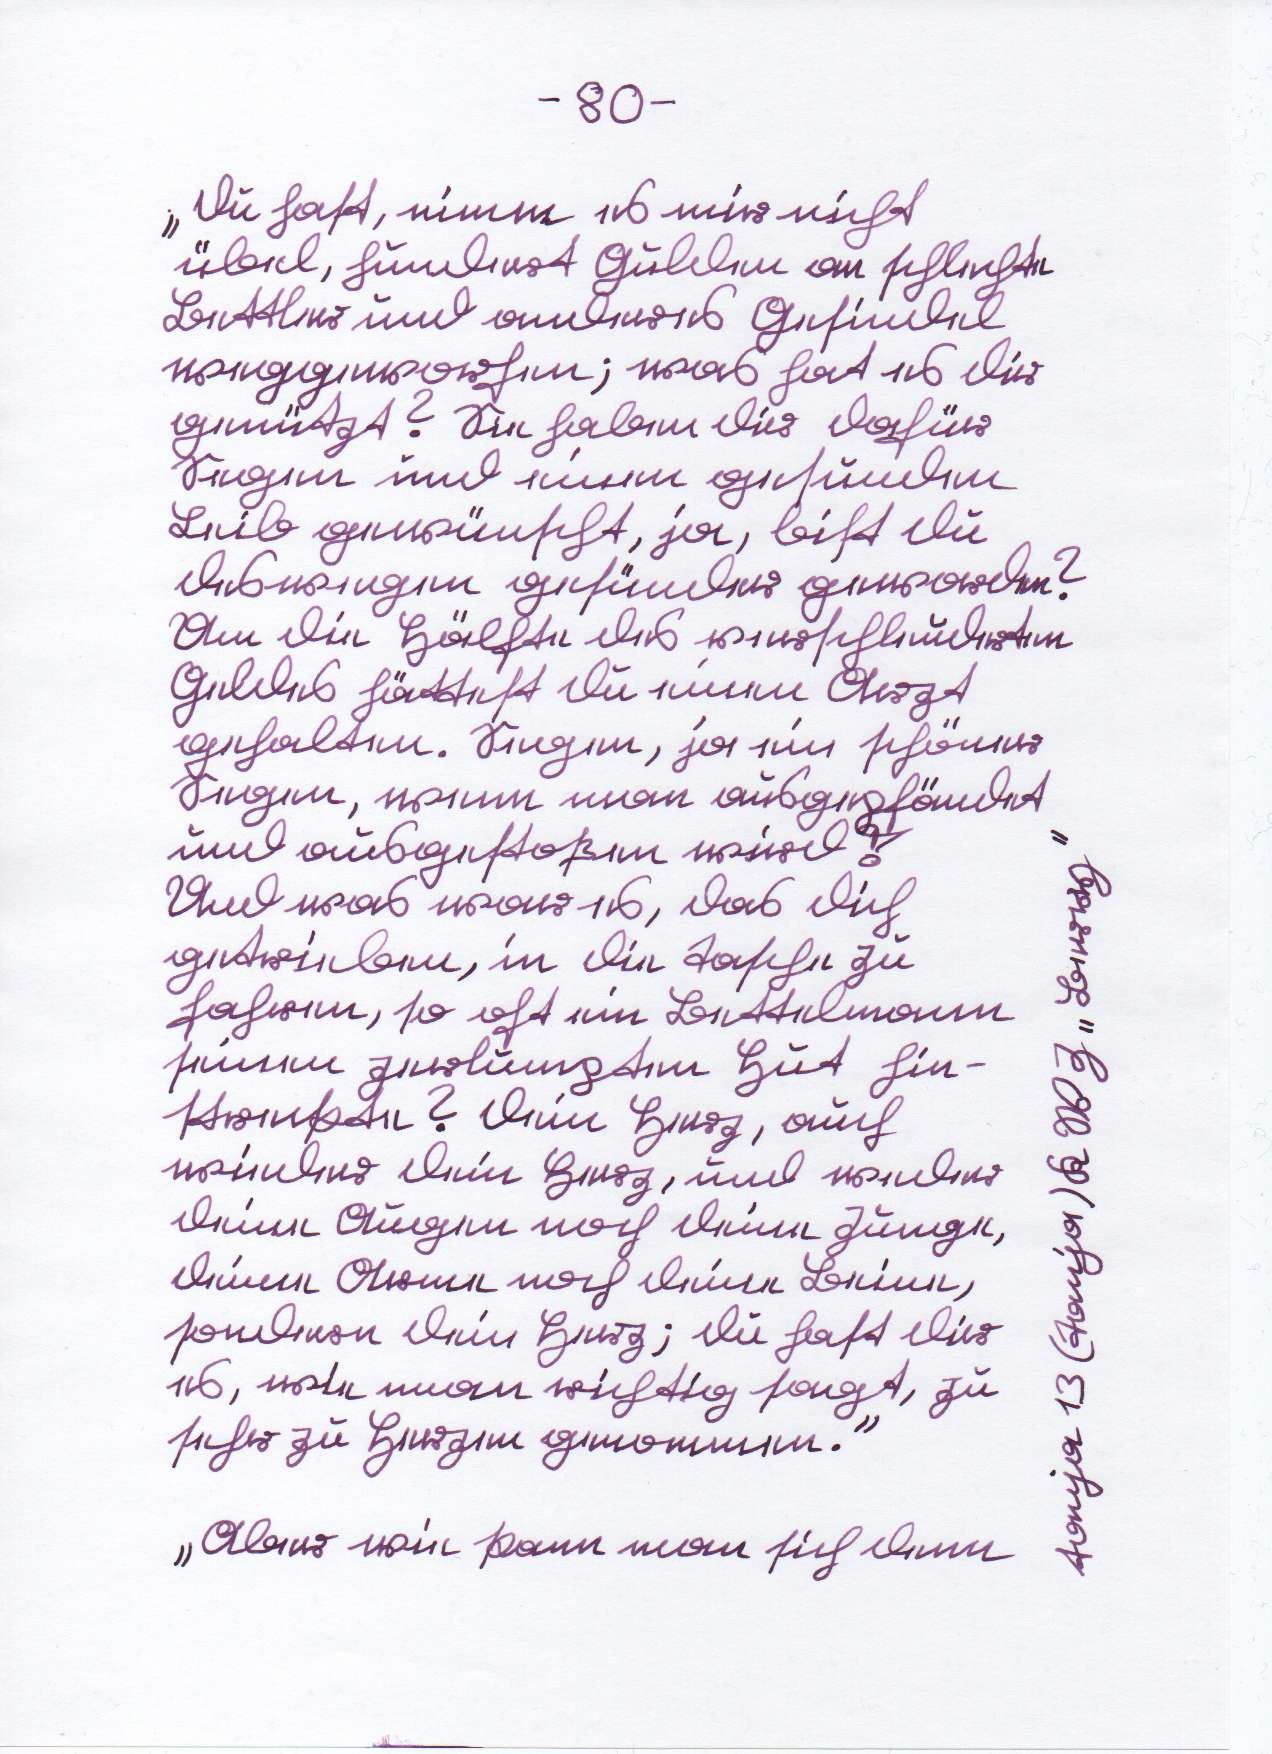 - 80 -
„Du hast, nimm es mir nicht
übel, hundert Gulden an schlechte
Bettler und anderes Gesindel
weggeworfen; was hat es dir
genützt? Sie haben dir dafür
Segen und einen gesunden
Leib gewünscht, ja, bist du
deswegen gesünder geworden?
Um die Hälfte des verschleuderten
Geldes hättest du einen Arzt
gehalten. Segen, ja ein schöner
Segen, wenn man ausgepfändet
und ausgestoßen wird?
Und was war es, das dich
getrieben, in die Tasche zu
fahren, so oft ein Bettelmann
seinen zerlumpten Hut hin-
streckte? Dein Herz, auch
wieder dein Herz, und weder
deine Augen noch deine Zunge,
deine Arme noch deine Beine,
sondern dein Herz; du hast dir
es, wie man richtig sagt, zu
sehr zu Herzen genommen.”
„Aber wie kann man sich denn